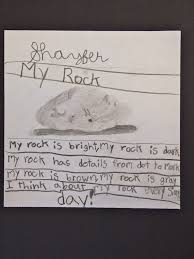 Shayfer
My Rock
My rock is bright, My rock is dark
My rock has details from dot to mark
My rock is brown, My rock is gray
I think about My rock every sing
day!